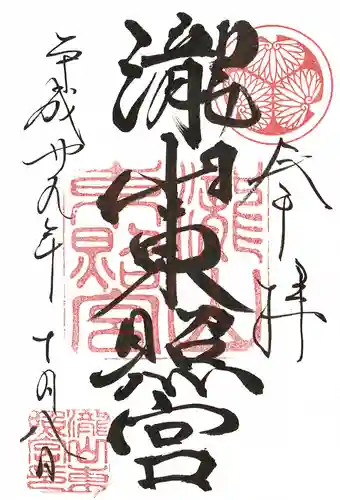 奉拝
瀧山東照宮
瀧山東照宮
平成廿九年十月八日